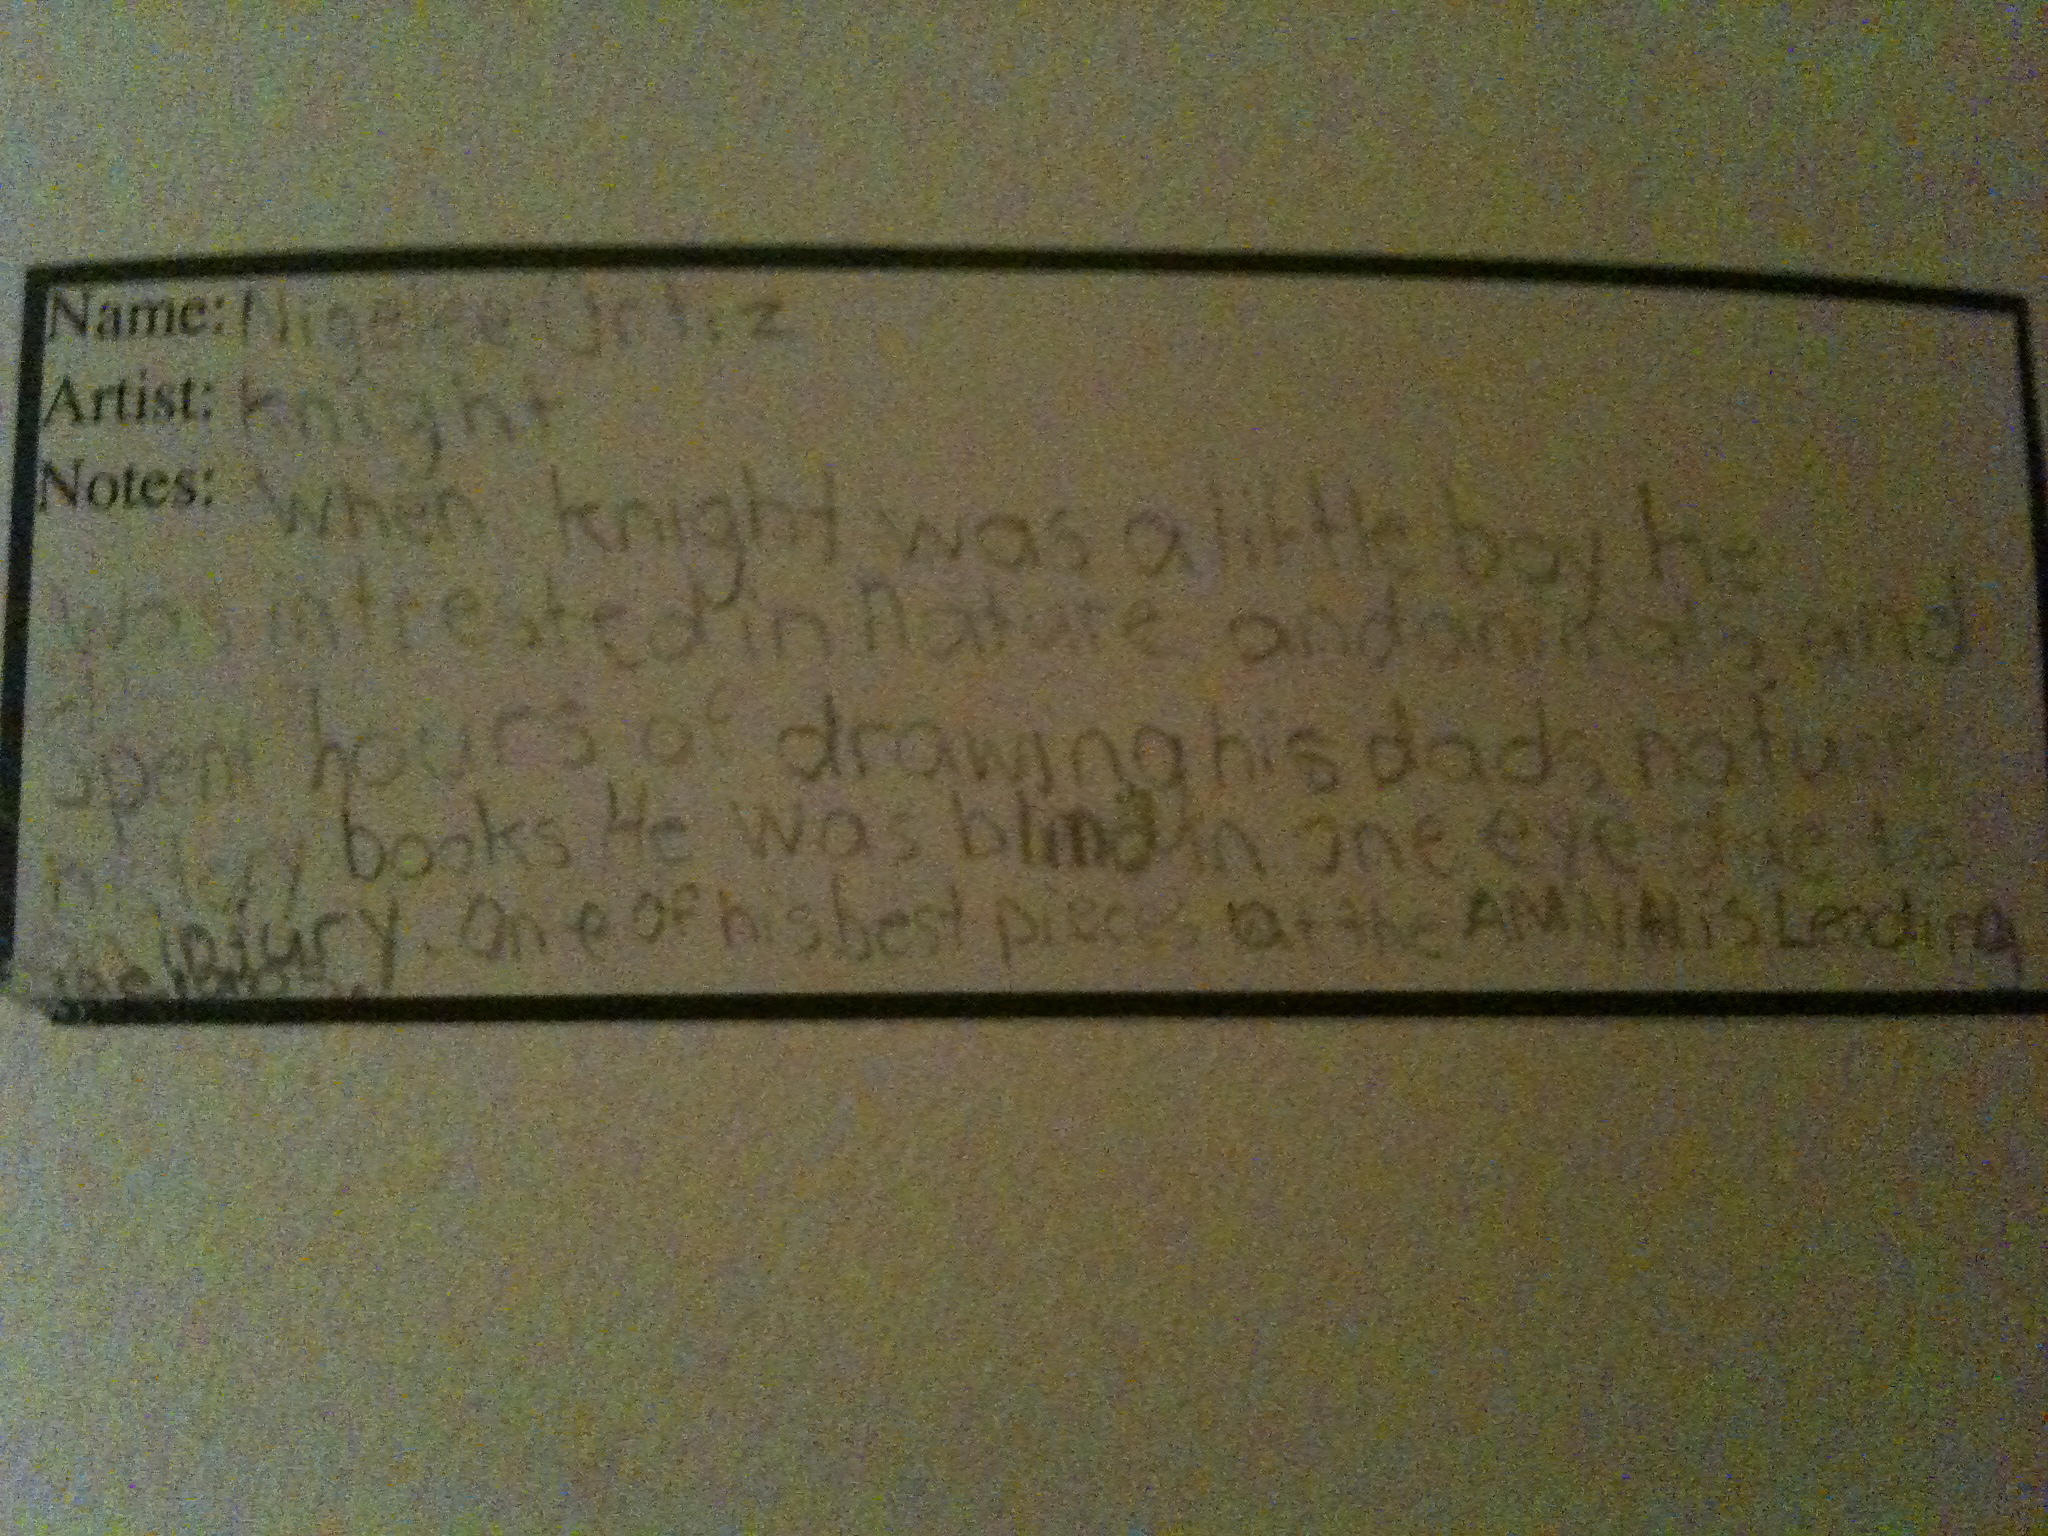 Name: Nigelee Ortiz
Artist: knight
Notes: When knight was a little boy he
was intrested in nature and animals and
spent hours of drawing his dads nature
books He was blind in one eye due to
an injury. One of his best pieces at the AMNH is Leading